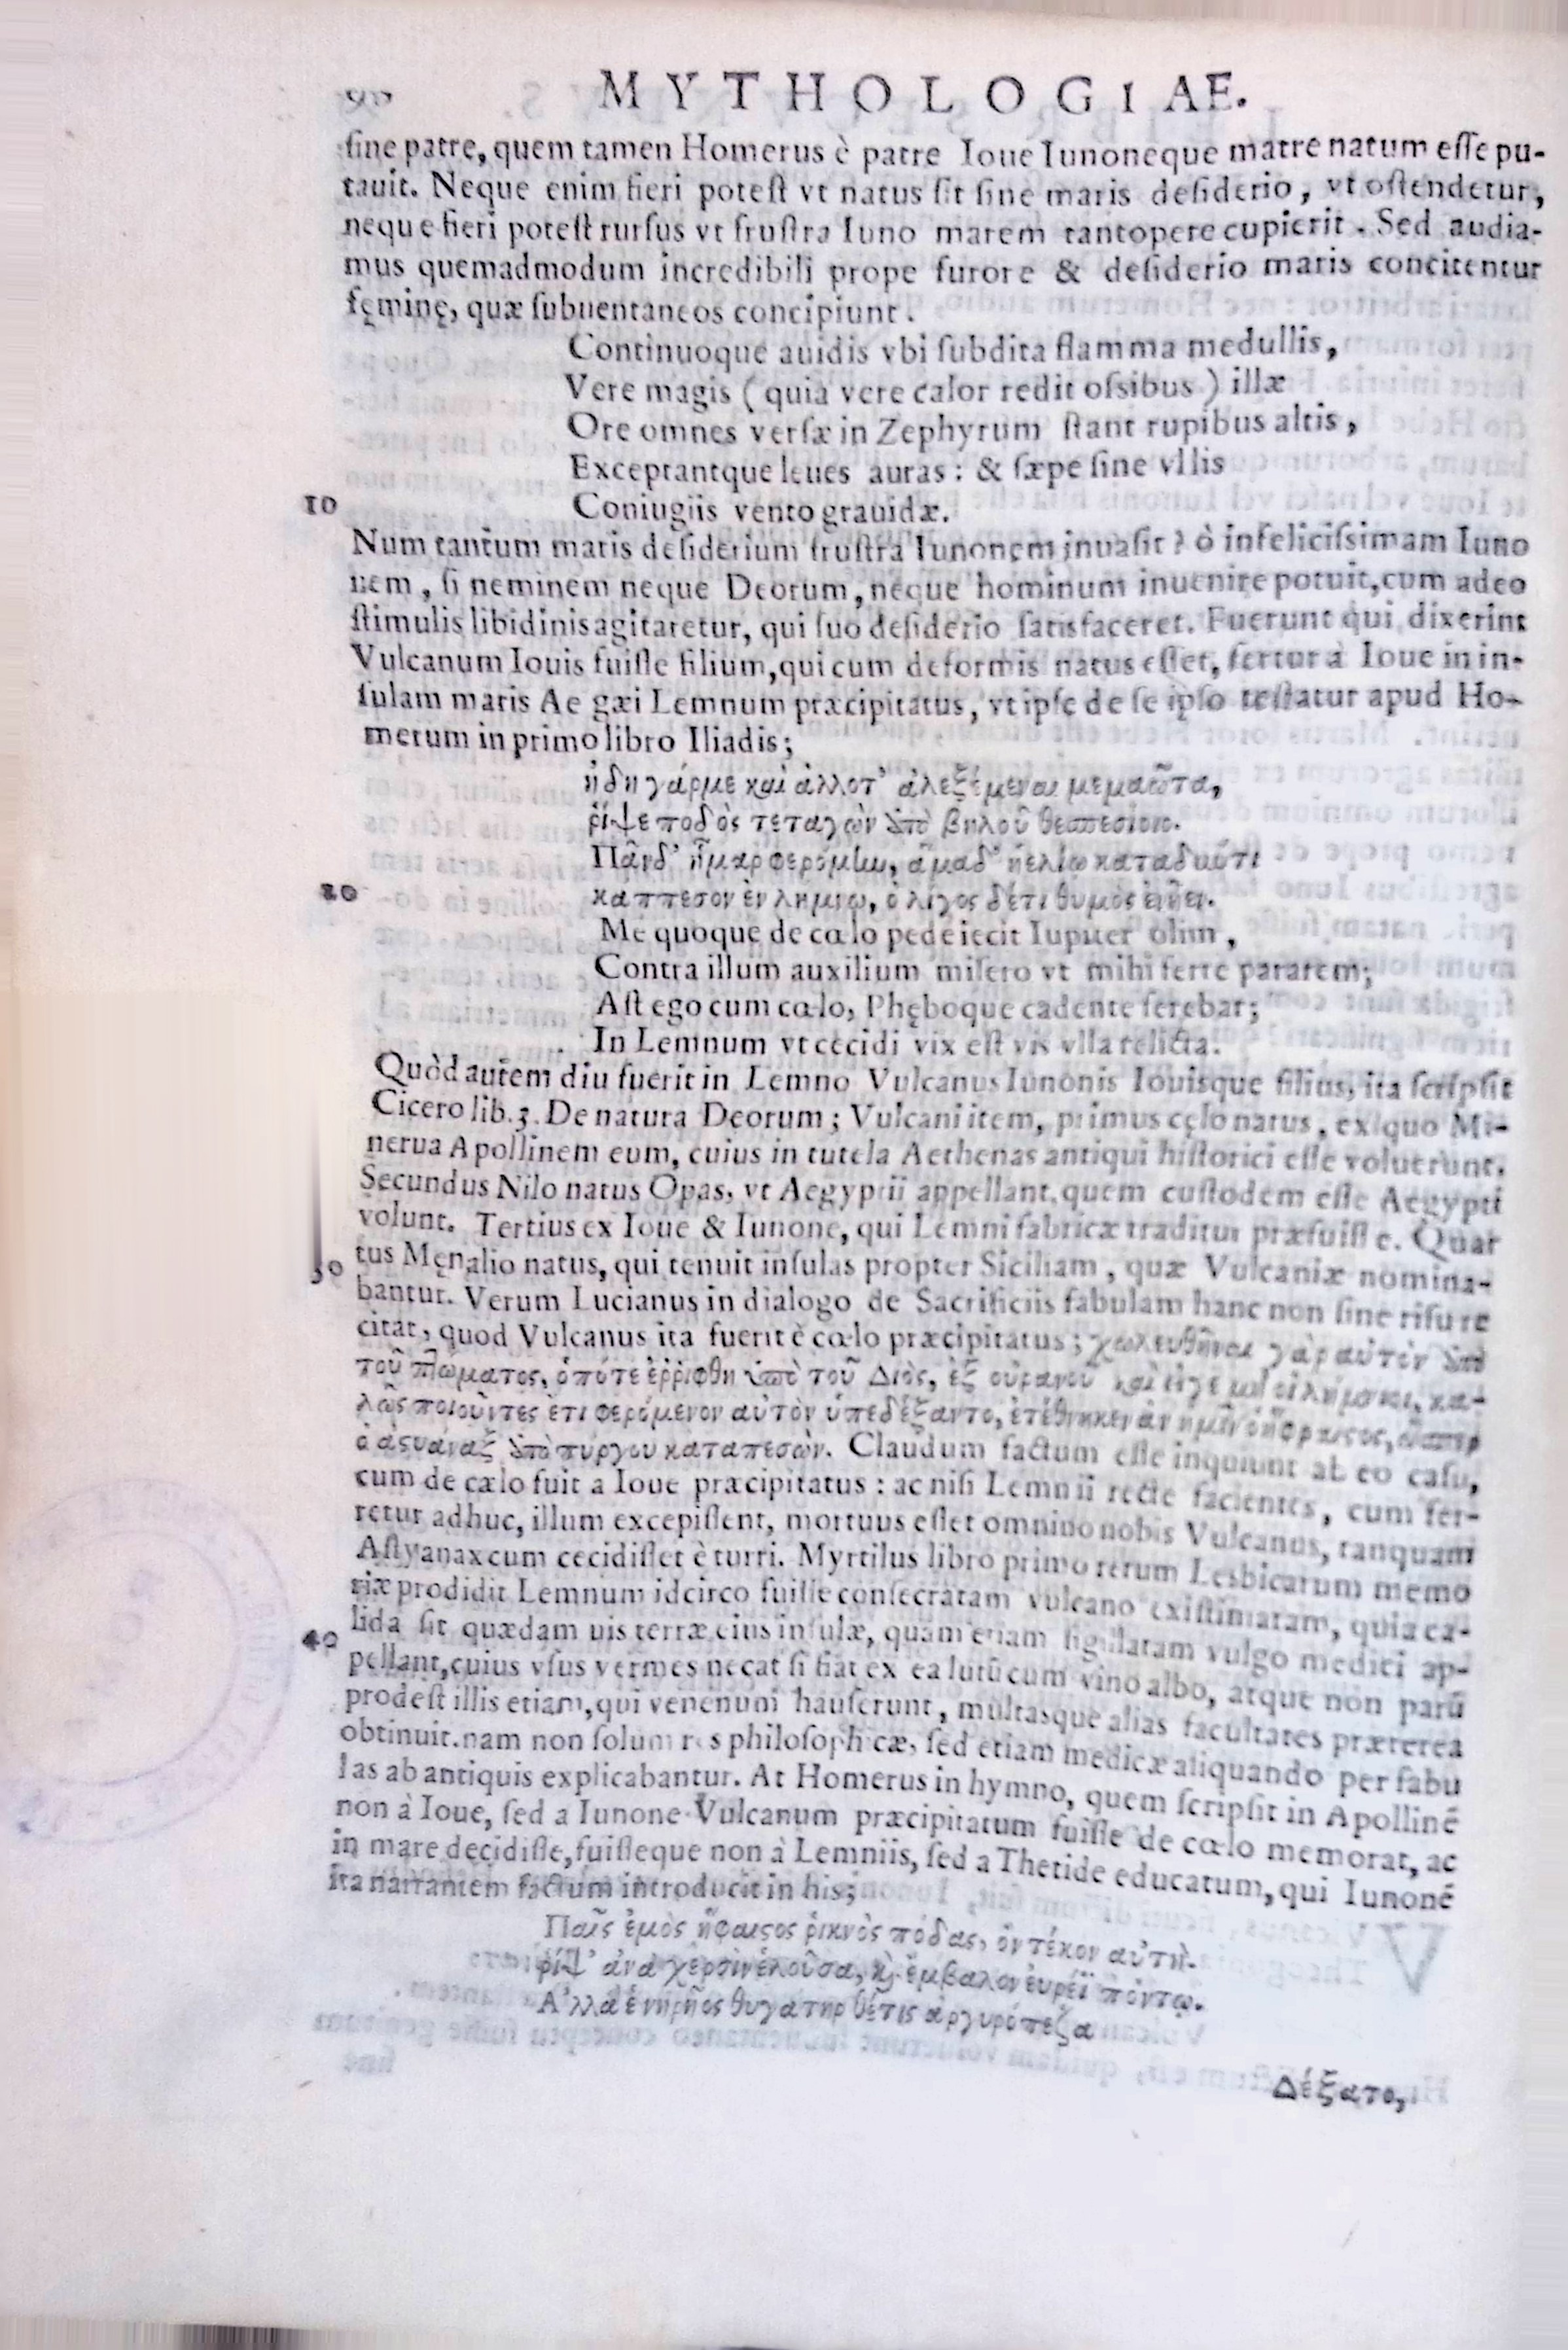 90 MYTHOLOGIAE.
ſine patre, quem tamen Homerus è patre Ioue Iunoneque matre natum eſſe pu-
tauit. Neque enim fieri poteſt vt natus ſit ſine maris deſiderio, vt oſtendetur,
neque fieri poteſt rurſus vt fruſtra Iuno marem tantopere cupierit. Sed audia-
mus quemadmodum incredibili prope furore & deſiderio maris concitentur
fęminę, quæ ſubuentaneos concipiunt.
Continuoque auidis vbi ſubdita flamma medullis,
Vere magis (quia vere calor redit oſsibus) illæ
Ore omnes verſæ in Zephyrum ſtant rupibus altis,
Exceptantque leues auras: & ſæpe ſine vllis
10 Coniugiis vento grauidæ.
Num tantum maris deſiderium fruſtra Iunonem inuaſit? ò infeliciſsimam Iuno
nem, ſi neminem neque Deorum, neque hominum inuenire potuit, cum adeo
ſtimulis libidinis agitaretur, qui ſuo deſiderio ſatisfaceret. Fuerunt qui dixerint
Vulcanum Iouis fuiſſe filium, qui cum deformis natus eſſet, fertur à Ioue in in-
ſulam maris Ae gæi Lemnum præcipitatus, vt ipſe de ſe ipſo teſtatur apud Ho-
merum in primo libro Iliadis;
ἤδη γάρ με καὶ ἄλλοτ' ἀλεξέμεναι μεμαῶτα,
ῥίψε ποδὸς τεταγὼν ἀπὸ βηλοῦ θεσπεσίοιο.
Πᾶν δ' ἦμαρ φερόμην, ἅμα δ' ἠελίῳ καταδύντι
20 κάππεσον ἐν λήμνῳ, ὀλίγος δ' ἔτι θυμὸς ἐνῆεν.
Me quoque de cœlo pede iecit Iupiter olim,
Contra illum auxilium miſero vt mihi ferre pararem;
Aſt ego cum cœlo, Phęboque cadente ferebar;
In Lemnum vt cecidi vix eſt vis vlla relicta.
Quòd autem diu fuerit in Lemno Vulcanus Iunonis Iouisque filius, ita ſcripſit
Cicero lib. 3. De natura Deorum; Vulcani item, primus cęlo natus, ex quo Mi-
nerua Apollinem eum, cuius in tutela Aethenas antiqui hiſtorici eſſe voluerunt.
Secundus Nilo natus Opas, vt Aegyptii appellant, quem cuſtodem eſſe Aegypti
volunt. Tertius ex Ioue & Iunone, qui Lemni fabricæ traditur præfuiſſe. Quar
30 tus Męnalio natus, qui tenuit inſulas propter Siciliam, quæ Vulcaniæ nomina-
bantur. Verum Lucianus in dialogo de Sacrificiis fabulam hanc non ſine riſu re
citat, quod Vulcanus ita fuerit è cœlo præcipitatus; χωλευθῆναι γὰρ αὐτὸν ἀπὸ
τοῦ πτώματος, ὁπότε ἐρρίφθη ὑπὸ τοῦ Διὸς, ἐξ οὐρανοῦ καὶ εἴγε μὴ οἱ λήμνιοι, κα-
λῶς ποιοῦντες ἔτι φερόμενον αὐτὸν ὑπεδέξαντο, ἐτεθνήκει ἂν ἡμῖν ὁ ἥφαιστος, ὥσπερ
ὁ ἀστυάναξ ἀπὸ πύργου καταπεσών. Claudum factum eſſe inquiunt ab eo caſu,
cum de cælo fuit a Ioue præcipitatus: ac niſi Lemnii recte facientes, cum fer-
retur adhuc, illum excepiſſent, mortuus eſſet omnino nobis Vulcanus, tanquam
Aſtyanax cum cecidiſſet è turri. Myrtilus libro primo rerum Lesbicarum memo
riæ prodidit Lemnum idcirco fuiſſe conſecratam vulcano exiſtimatam, quia ca-
40 lida ſit quædam uis terræ eius inſulæ, quam etiam ſigillatam vulgo medici ap-
pellant, cuius vſus vermes necat ſi fiat ex ea lutū cum vino albo, atque non parū
prodeſt illis etiam, qui venenum hauſerunt, multasque alias facultates præterea
obtinuit. nam non ſolum res philoſophicæ, ſed etiam medicæ aliquando per fabu
las ab antiquis explicabantur. At Homerus in hymno, quem ſcripſit in Apollinē
non à Ioue, ſed a Iunone Vulcanum præcipitatum fuiſſe de cœlo memorat, ac
in mare decidiſſe, fuiſſeque non à Lemniis, ſed a Thetide educatum, qui Iunonē
ita narrantem factum introducit in his;
Παῖς ἐμὸς ἥφαιστος ῥικνὸς πόδας, ὃν τέκον αὐτή.
ῥίψ' ἀνὰ χερσὶν ἑλοῦσα, καὶ ἔμβαλον εὐρέϊ πόντῳ.
Α'λλά ἑ νηρῆος θυγάτηρ θέτις ἀργυρόπεζα
Δέξατο,